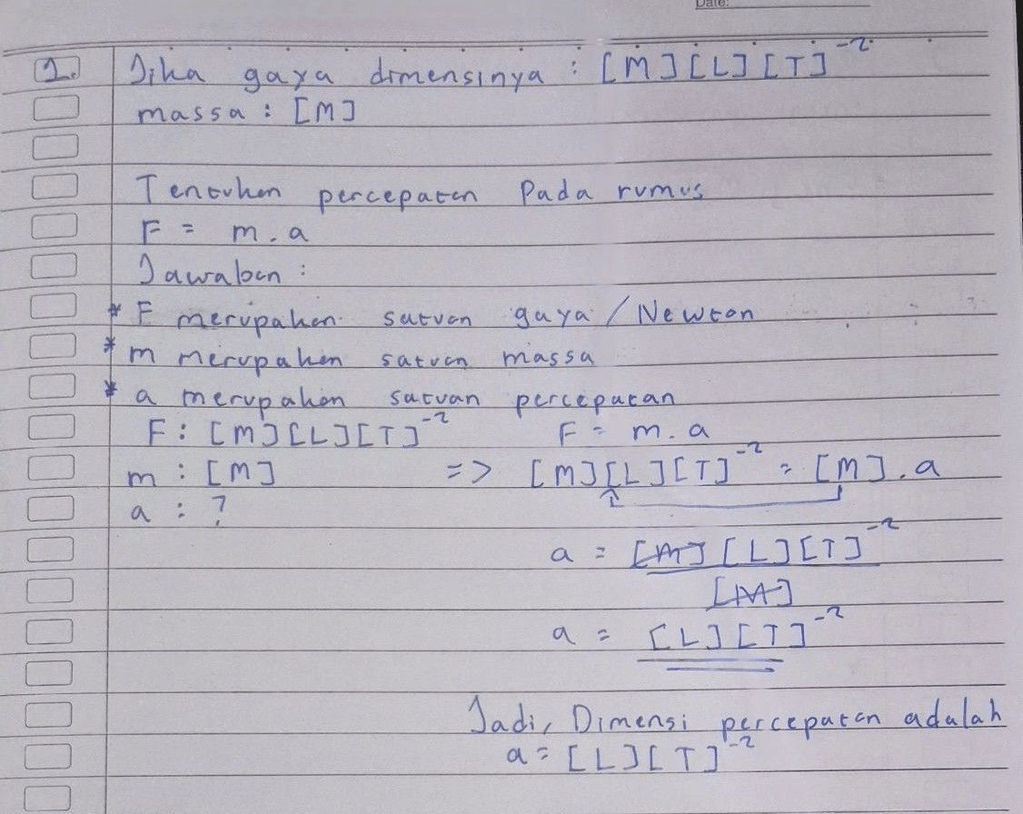 Date:
1. Jika gaya dimensinya : [M][L][T]⁻²
massa : [M]
Tentukan percepatan Pada rumus
F = m . a
Jawaban :
* F merupakan satuan gaya / Newton
* m merupakan satuan massa
* a merupakan satuan percepatan
F : [M][L][T]⁻² F = m . a
m : [M] => [M][L][T]⁻² = [M] . a
a : ?
a = [M][L][T]⁻²
[M]
a = [L][T]⁻²
Jadi, Dimensi percepatan adalah
a = [L][T]⁻²